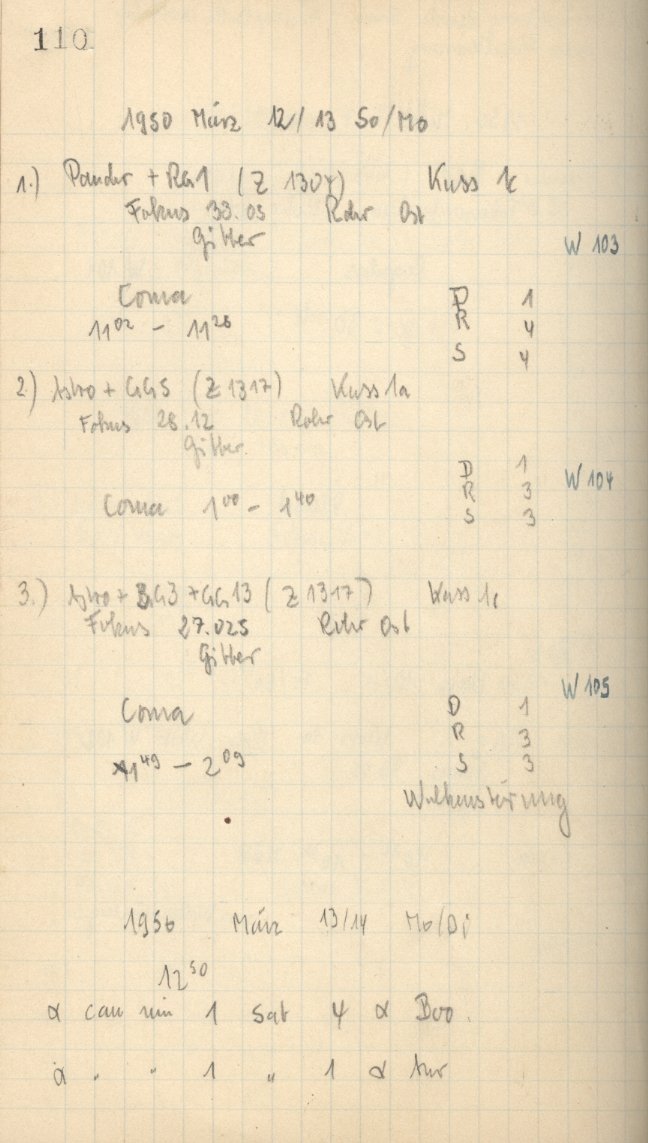 110
1950 März 12/13 So/Mo
1.) Pandr + RG1 (Z 1307) Kuss 1c
Fokus 33.05 Rohr Ost
Gitter
W 103
Coma D 1
11⁰² – 11²⁸ R 4
S 4
2) Astro + GG5 (Z 1317) Kuss 1a
Fokus 28.12 Rohr Ost
Gitter
D 1
W 104
R 3
Coma 1⁰⁰ – 1⁴⁰ S 3
3.) Astro + BG3 + GG13 (Z 1317) Kuss 1c
Fokus 27.025 Rohr Ost
Gitter
W 105
Coma D 1
R 3
1⁴⁹ – 2⁰⁹ S 3
Wolkenstörung
1950 März 13/14 Mo/Di
12⁵⁰
α can min 1 Sat 4 α Boo.
α " " 1 " 1 α Aur